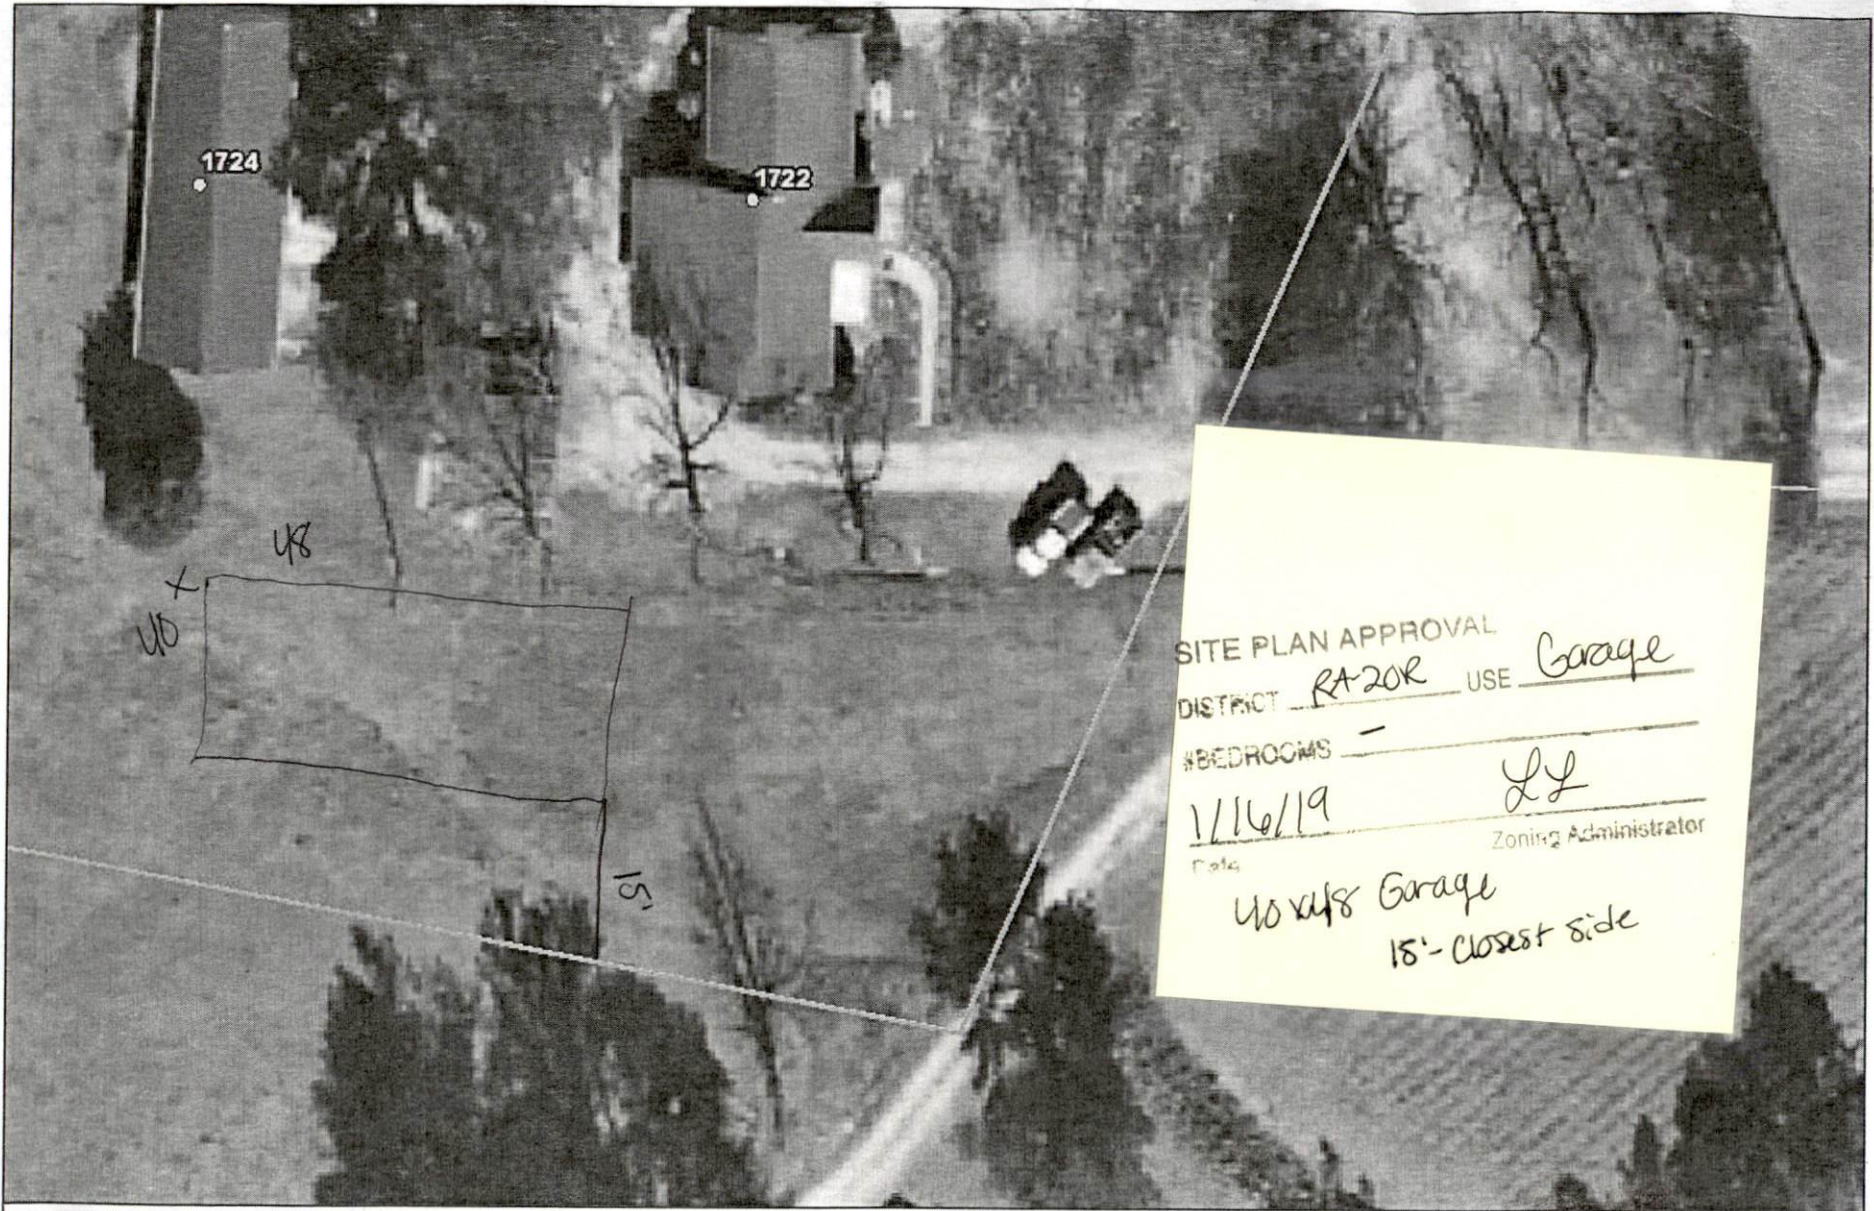 1724
1722
48
X
40
15'
SITE PLAN APPROVAL
DISTRICT RA-20R USE Garage
#BEDROOMS —
1/16/19 LL
Date Zoning Administrator
40x48 Garage
15'- Closest side